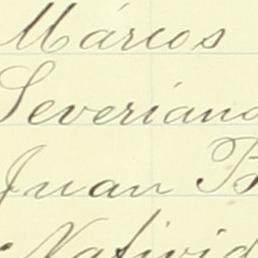 Márcos
Severiano
Juan B
Nativid